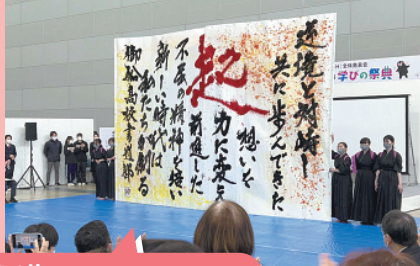 逆境と対峙し
共に歩んできた
起
想いを
力に変え
前進した
不屈の精神を培い
新しい時代は
私たちが創る
御船高校書道部
学びの祭典